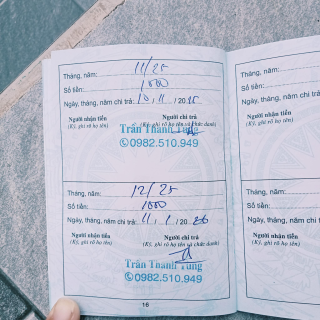 Tháng, năm: 11/25
Số tiền: 1500
Ngày, tháng, năm chi trả: 10, 11 / 20 25
Người nhận tiền Người chi trả
(Ký, ghi rõ họ tên) (Ký, ghi rõ họ tên và chức danh)
Trần Thanh Tùng
0982.510.949
Tháng, năm: 12/25
Số tiền: 1500
Ngày, tháng, năm chi trả: 11, 1 / 20 26
Người nhận tiền Người chi trả
(Ký, ghi rõ họ tên) (Ký, ghi rõ họ tên và chức danh)
Trần Thanh Tùng
0982.510.949
16
Tháng, năm:
Số tiền:
Ngày, tháng, năm
Người nhận tiền
(Ký, ghi rõ họ tên)
Tháng, năm:
Số tiền:
Ngày, tháng, năm
Người nhận tiền
(Ký, ghi rõ họ tên)